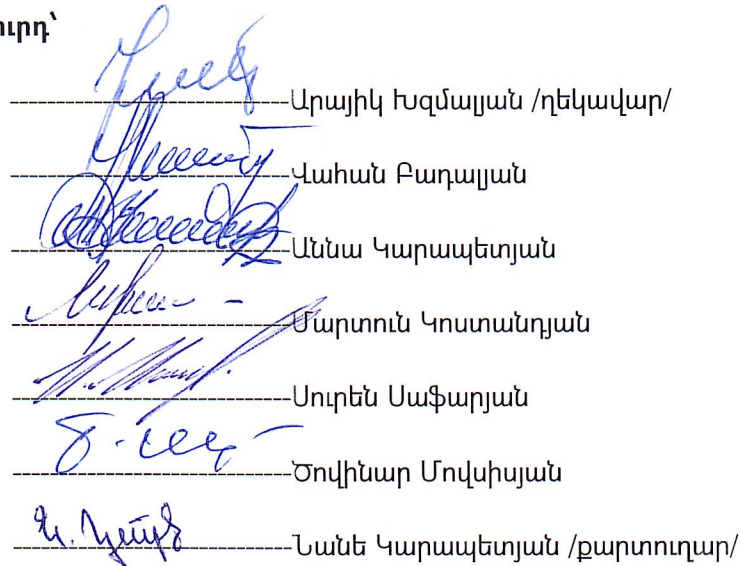 Արայիկ Խզմալյան /ղեկավար/
Վահան Բադալյան
Աննա Կարապետյան
Մարտուն Կոստանդյան
Սուրեն Սաֆարյան
Ծովինար Մովսիսյան
Նանե Կարապետյան /քարտուղար/